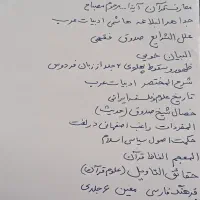 معارف قرآن آیت ا... مصباح
جواهر البلاغه هاشمی ادبیات عرب
علل الشرایع صدوق فقهی
البیان خویی
ظهور و سقوط پهلوی ۲ جلد از زبان فردوست
شرح المختصر ادبیات عرب
تاریخ علوم فلسفه ایرانی
خصال شیخ صدوق (حدیث)
المفردات راغب اصفهانی در لغت
حکمت اصول سیاسی اسلام
المعجم الفاظ قرآن
حقائق التاویل (علوم قرآن)
فرهنگ فارسی معین ۶ جلدی